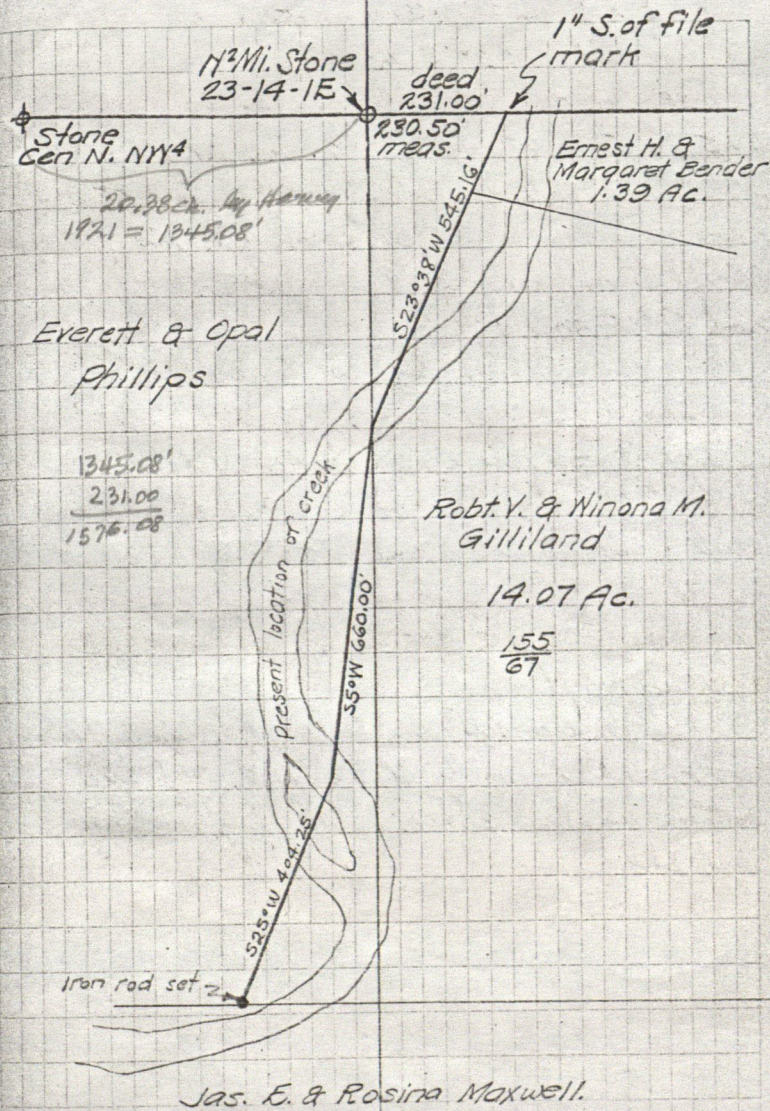 1" S. of file
mark
N½Mi. Stone
23-14-1E
deed
231.00'
230.50'
meas.
Stone
Cen N. NW⁴
20.38 ch. by Harvey
1921 = 1345.08'
Ernest H. &
Margaret Bender
1.39 Ac.
S23°38'W 545.16'
Everett & Opal
Phillips
1345.08'
231.00
1576.08
Present location of creek
Robt. V. & Winona M.
Gilliland
14.07 Ac.
155
67
S5°W 660.00'
S25°W 404.25'
Iron rod set
Jas. E. & Rosina Maxwell.